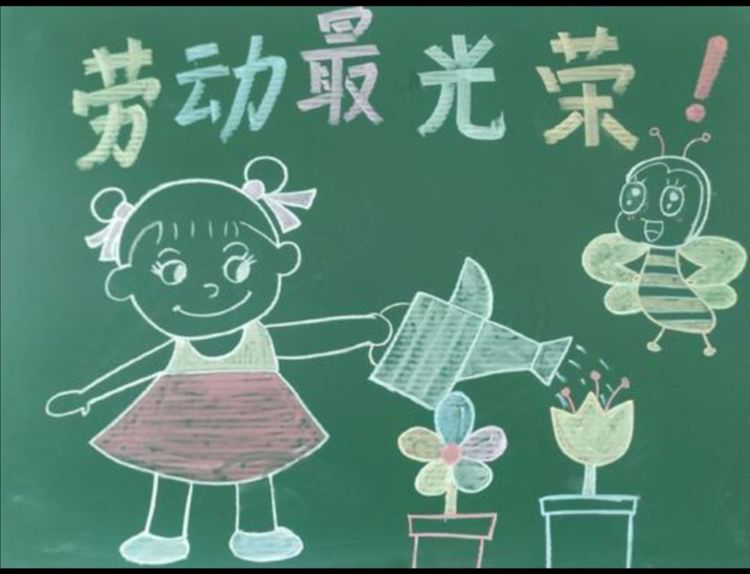 劳动最光荣!